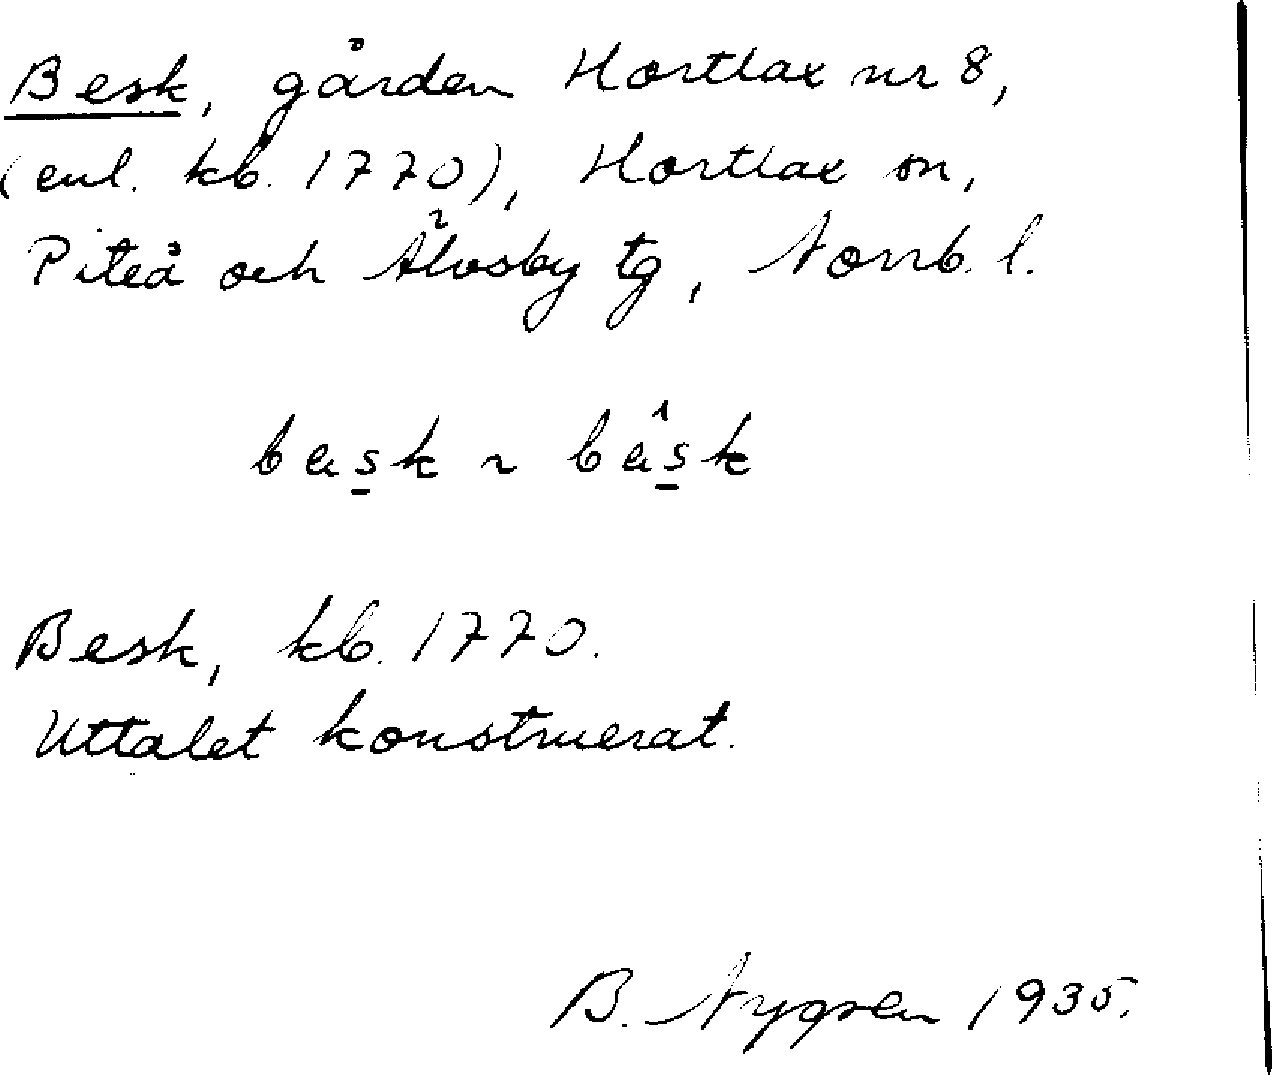 Besk, gården Hortlax nr 8,
(enl. kb. 1770), Hortlax sn,
Piteå och Älvsby tg, Norrb. l.
Besk, kb. 1770.
Uttalet konstruerat.
B. Nygren 1935.